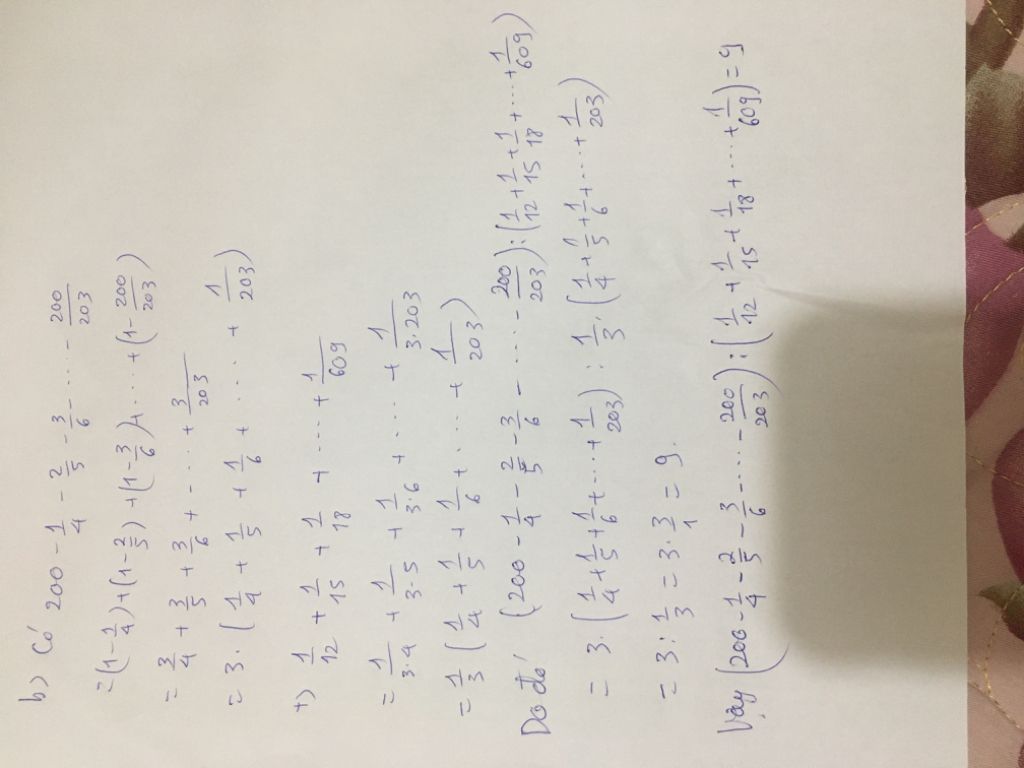 b) Có 200 - 1/4 - 2/5 - 3/6 - ..... - 200/203
= (1 - 1/4) + (1 - 2/5) + (1 - 3/6) + ..... + (1 - 200/203)
= 3/4 + 3/5 + 3/6 + ..... + 3/203
= 3 . (1/4 + 1/5 + 1/6 + ..... + 1/203)
+) 1/12 + 1/15 + 1/18 + ..... + 1/609
= 1/3.4 + 1/3.5 + 1/3.6 + ..... + 1/3.203
= 1/3 (1/4 + 1/5 + 1/6 + ..... + 1/203)
Do đó (200 - 1/4 - 2/5 - 3/6 - ..... - 200/203) : (1/12 + 1/15 + 1/18 + ..... + 1/609)
= 3 . (1/4 + 1/5 + 1/6 + ..... + 1/203) : 1/3 . (1/4 + 1/5 + 1/6 + ..... + 1/203)
= 3 : 1/3 = 3 . 3/1 = 9.
Vậy (200 - 1/4 - 2/5 - 3/6 - ..... - 200/203) : (1/12 + 1/15 + 1/18 + ..... + 1/609) = 9